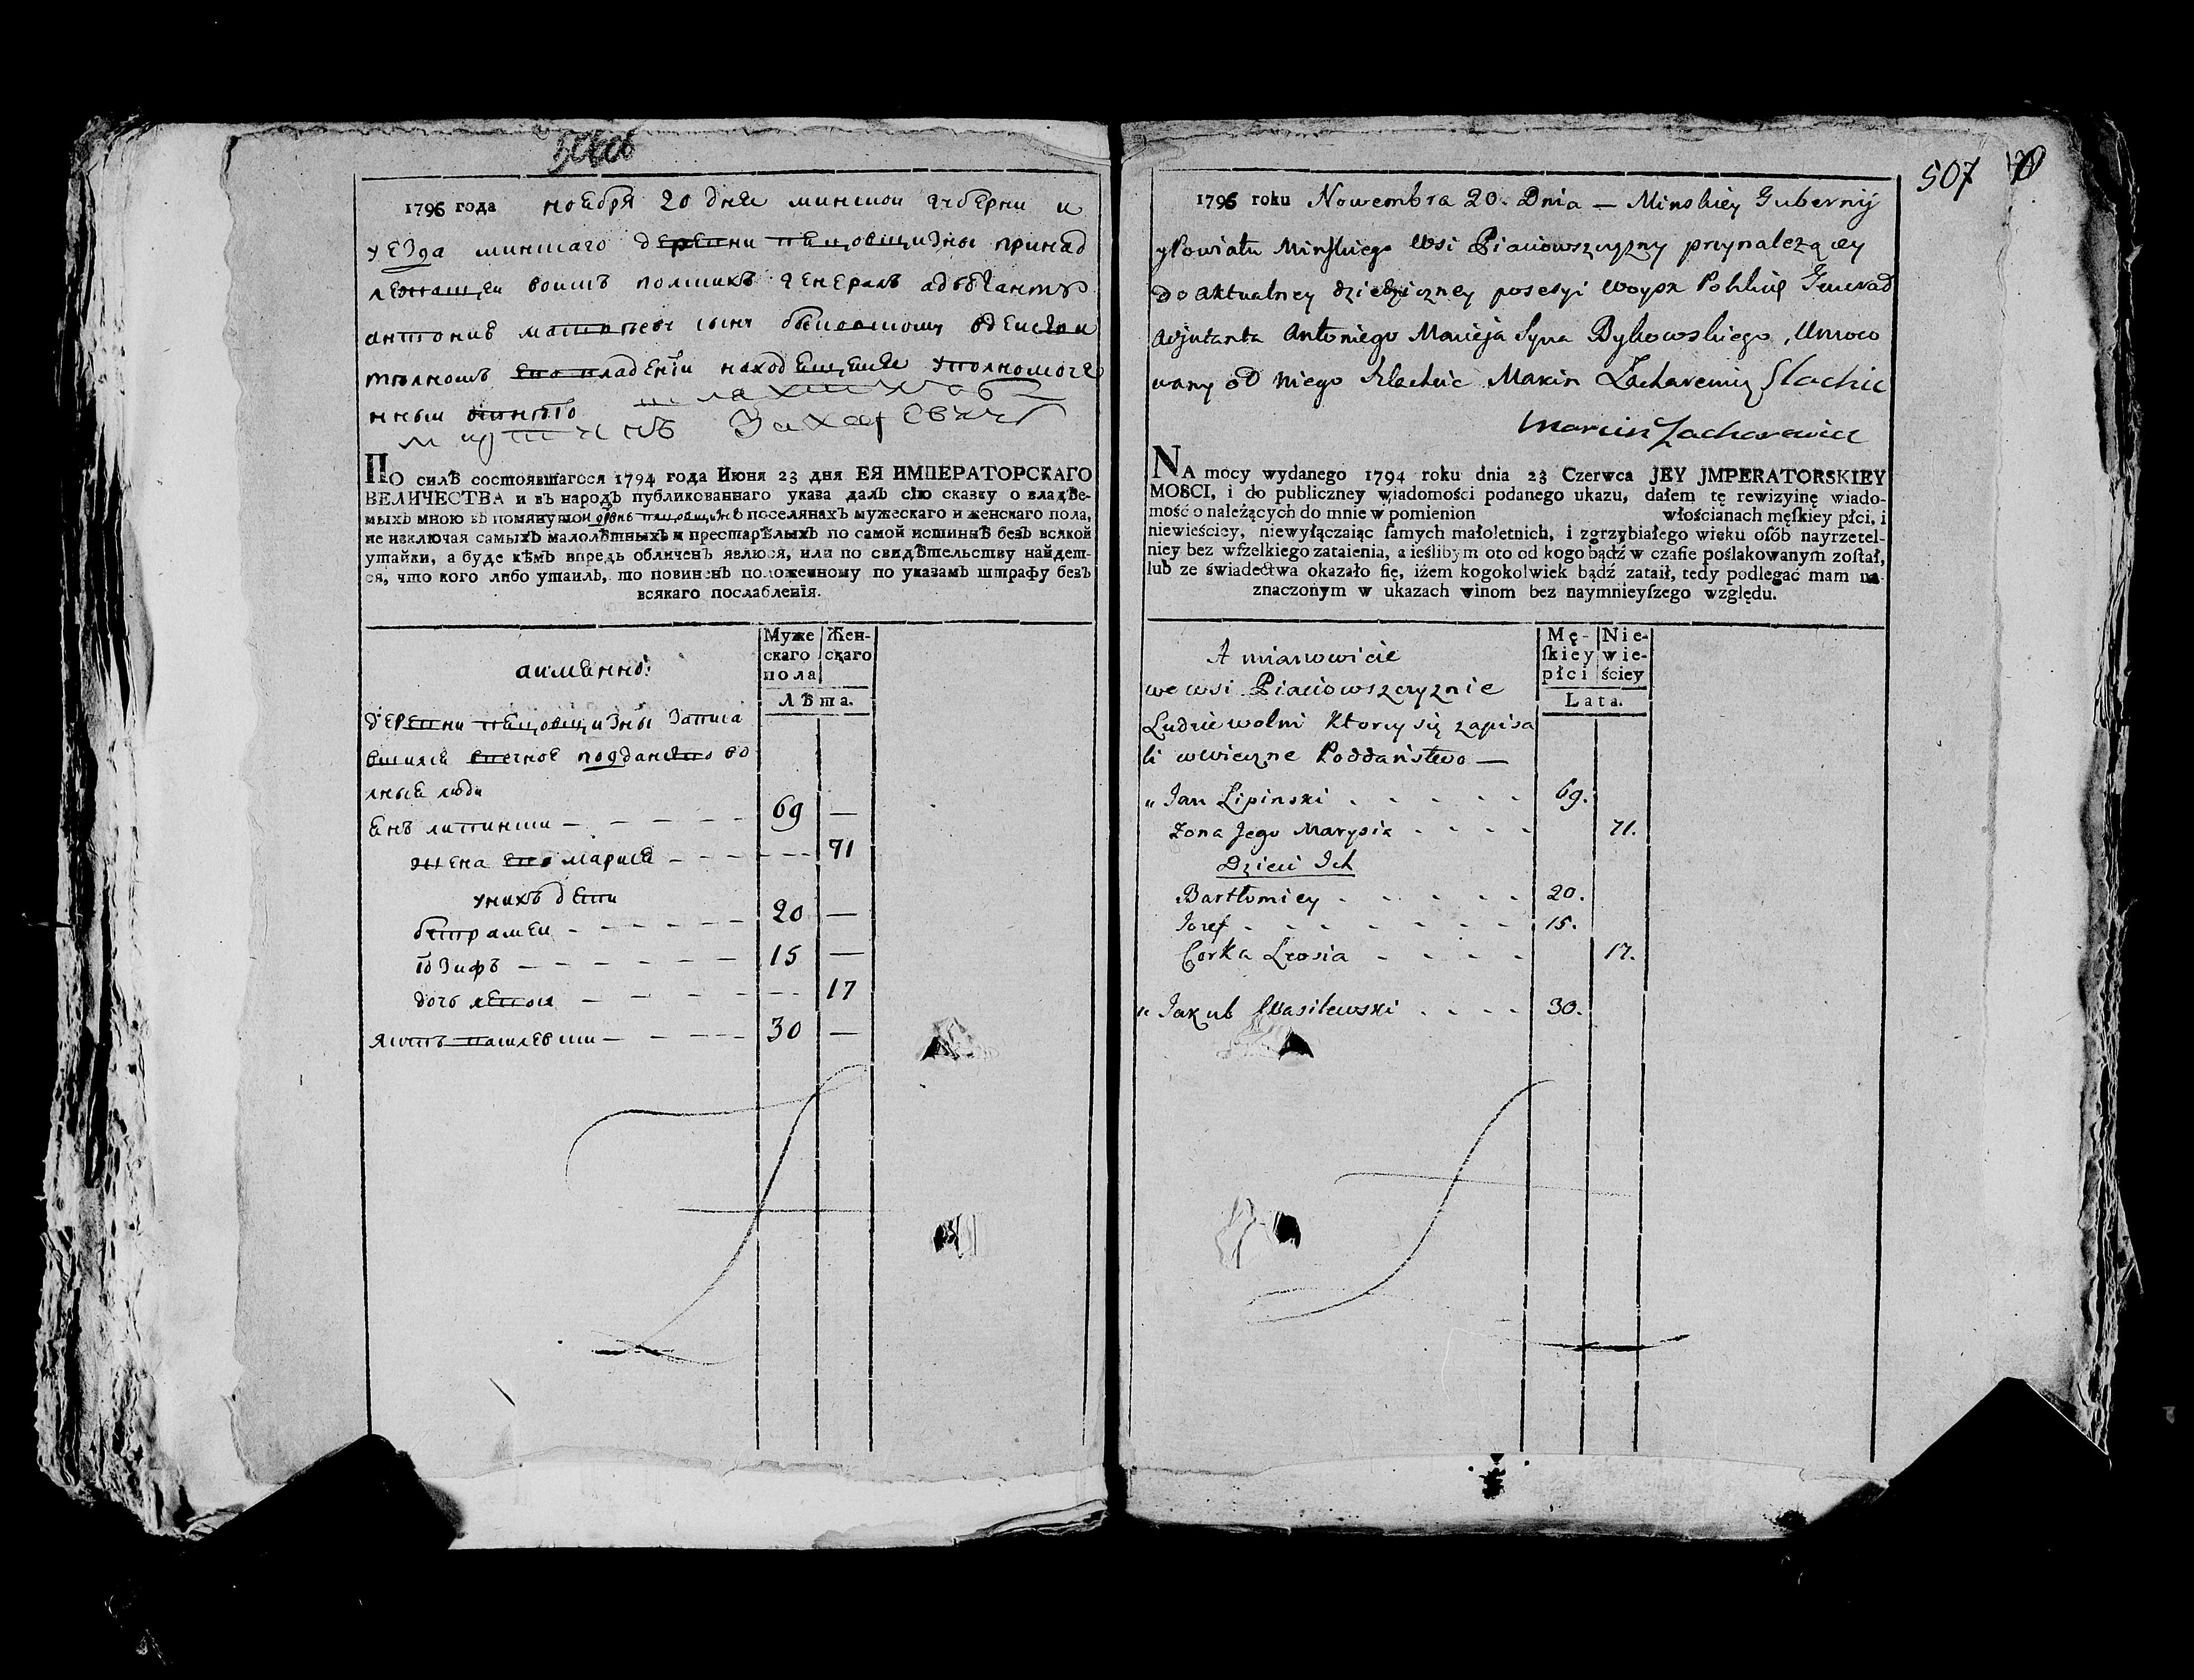 1795 года ноября 20 дня минской губерни и
уезда минскаго деревни пяцовщизны принад
лежащей войскъ полскихъ генералъ адъютанту
антонию сыну
владении находящияся уполномоче
нный шляхтичъ
мартинъ Захаревичъ
По силѣ состоявшагося 1794 года Июня 23 дня ЕЯ ИМПЕРАТОРСКАГО
ВЕЛИЧЕСТВА и въ народъ публикованнаго указа далъ сїю сказку о владѣе-
мыхъ мною въ помянутой поселянахъ мужескаго и женскаго пола,
не изключая самыхъ малолѣтныхъ и престарѣлыхъ по самой истиннѣ безъ всякой
утайки, а буде кѣмъ впредь обличенъ явлюся, или по свидѣтельству найдет-
ся, что кого либо утаилъ, то повиненъ положенному по указамъ штрафу безъ
всякаго послабленїя.
аименно:
Муже
скаго
пола
Жен-
скаго
Лѣта.
деревни пяцовщизны записа
вшияся вечное подданство во
лныя люди
янъ липински — 69 —
жена его марися — 71
у нихъ дети
20 —
юзифъ — 15 —
дочь — 17
якубъ василевски — 30 —
507
1795 roku Nowembra 20. Dnia — Minskiey Gubernij
y Powiatu Minskiego Wsi Piaciowszczyzny przynalezącey
do aktualney dziedziczney posesyi Woysk Polskich Generał
Adjutanta Antoniego Macieja Syna Bykowskiego, Umoco
wany od niego Szlachcic Marcin Zacharewicz Slachic
Marcin Zacharewicz
NA mocy wydanego 1794 roku dnia 23 Czerwca JEY JMPERATORSKIEY
MOSCI, i do publiczney wiadomości podanego ukazu, dałem tę rewizyinę wiado-
mość o należących do mnie w pomienion włościanach męſkiey płci, i
niewieściey, niewyłączaiąc ſamych małoletnich, i zgrzybiałego wieku osób nayrzetel-
niey bez wſzelkiego zataienia, a ieślibym oto od kogo bądź w czaſie poślakowanym zoſtał,
lub ze świadectwa okazało ſię, iżem kogokolwiek bądź zataił, tedy podlegać mam na-
znaczonym w ukazach winom bez naymnieyſzego względu.
A mianowicie
Mę-
ſkiey
płci
Nie-
wie-
ściey
Lata.
we wsi Piaciowszczyznie
Ludzie wolni Ktorzy się zapisa
li w wieczne Poddaństwo —
„ Jan Lipinski . . . . . 69.
Zona Jego Marysia . . . . 71.
Dzieci Ich
Bartłomiey . . . . . 20.
Jozef . . . . . . . 15.
Corka Zosia . . . . 17.
„ Jakub Wasilewski . . . . 30.